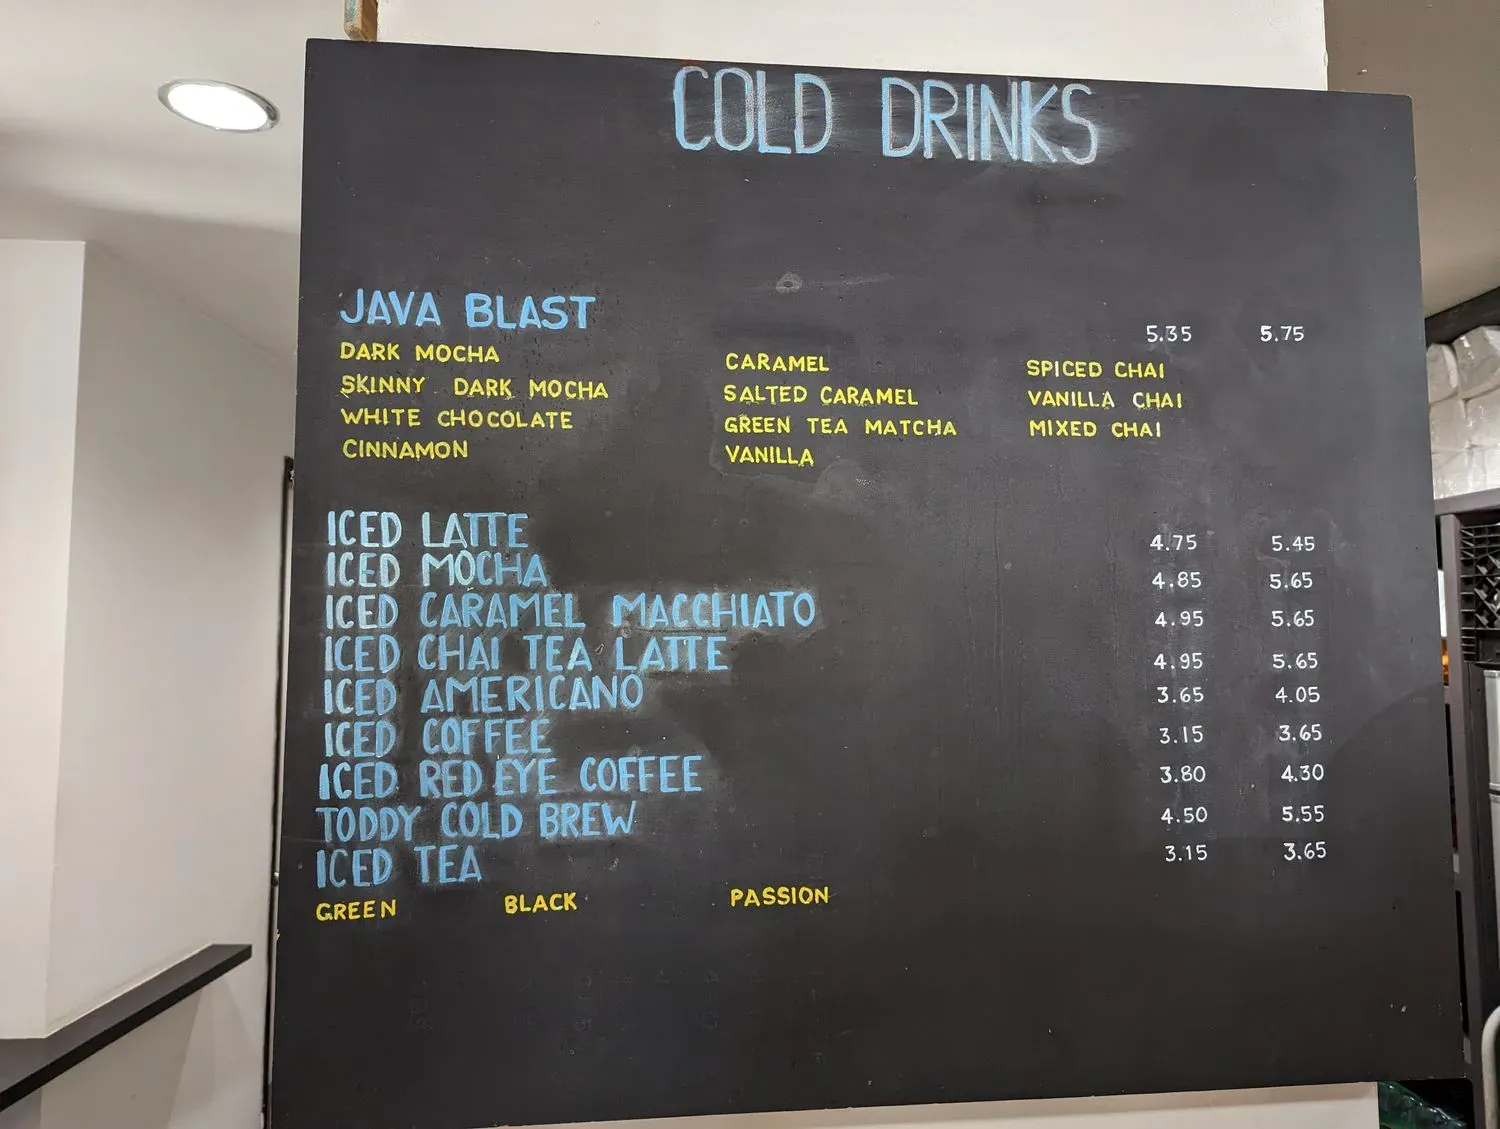 COLD DRINKS
JAVA BLAST 5.35 5.75
DARK MOCHA CARAMEL SPICED CHAI
SKINNY DARK MOCHA SALTED CARAMEL VANILLA CHAI
WHITE CHOCOLATE GREEN TEA MATCHA MIXED CHAI
CINNAMON VANILLA
ICED LATTE 4.75 5.45
ICED MOCHA 4.85 5.65
ICED CARAMEL MACCHIATO 4.95 5.65
ICED CHAI TEA LATTE 4.95 5.65
ICED AMERICANO 3.65 4.05
ICED COFFEE 3.15 3.65
ICED RED EYE COFFEE 3.80 4.30
TODDY COLD BREW 4.50 5.55
ICED TEA 3.15 3.65
GREEN BLACK PASSION